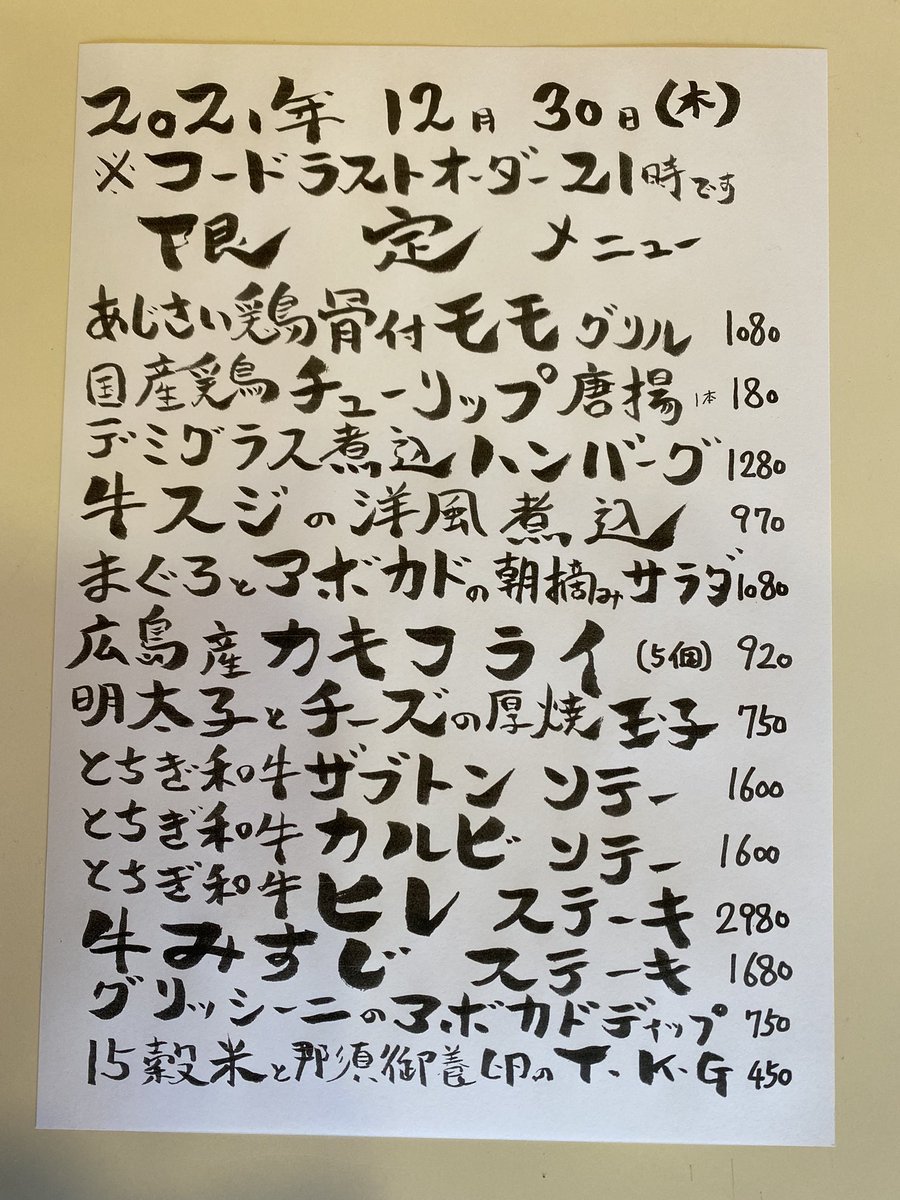 2021年 12月 30日(木)
※フードラストオーダー21時です
限定メニュー
あじさい鶏骨付モモグリル 1080
国産鶏チューリップ唐揚 1本 180
デミグラス煮込ハンバーグ 1280
牛スジの洋風煮込 970
まぐろとアボカドの朝摘みサラダ 1080
広島産カキフライ(5個) 920
明太子とチーズの厚焼玉子 750
とちぎ和牛ザブトンソテー 1600
とちぎ和牛カルビソテー 1600
とちぎ和牛ヒレステーキ 2980
牛みすじステーキ 1680
グリッシーニのアボカドディップ 750
15穀米と那須御養卵のT.K.G 450